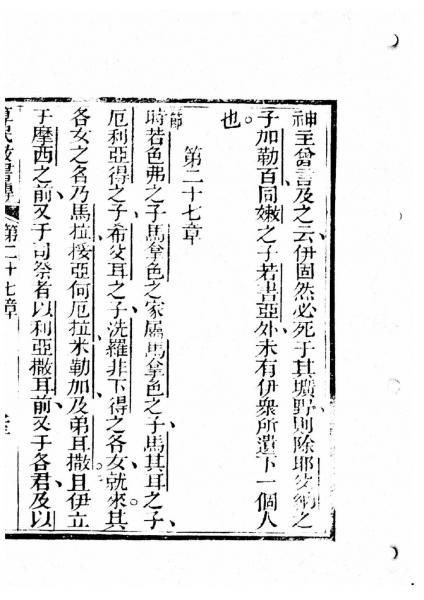 神主曾言及之云伊固然必死于其壙野則除耶孚納之
子加勒百同嫩之子若書亞外未有伊衆所遺下一個人
也。
第二十七章
節時若色弗之子馬拿色之家屬馬拿色之子馬其耳之子
厄利亞得之子希孚耳之子洗羅非下得之各女就來其
各女之名乃馬拉挼亞何厄拉米勒加及弟耳撒且伊立
于摩西之前又于司祭者以利亞撒耳前又于各君及以
第二十七章